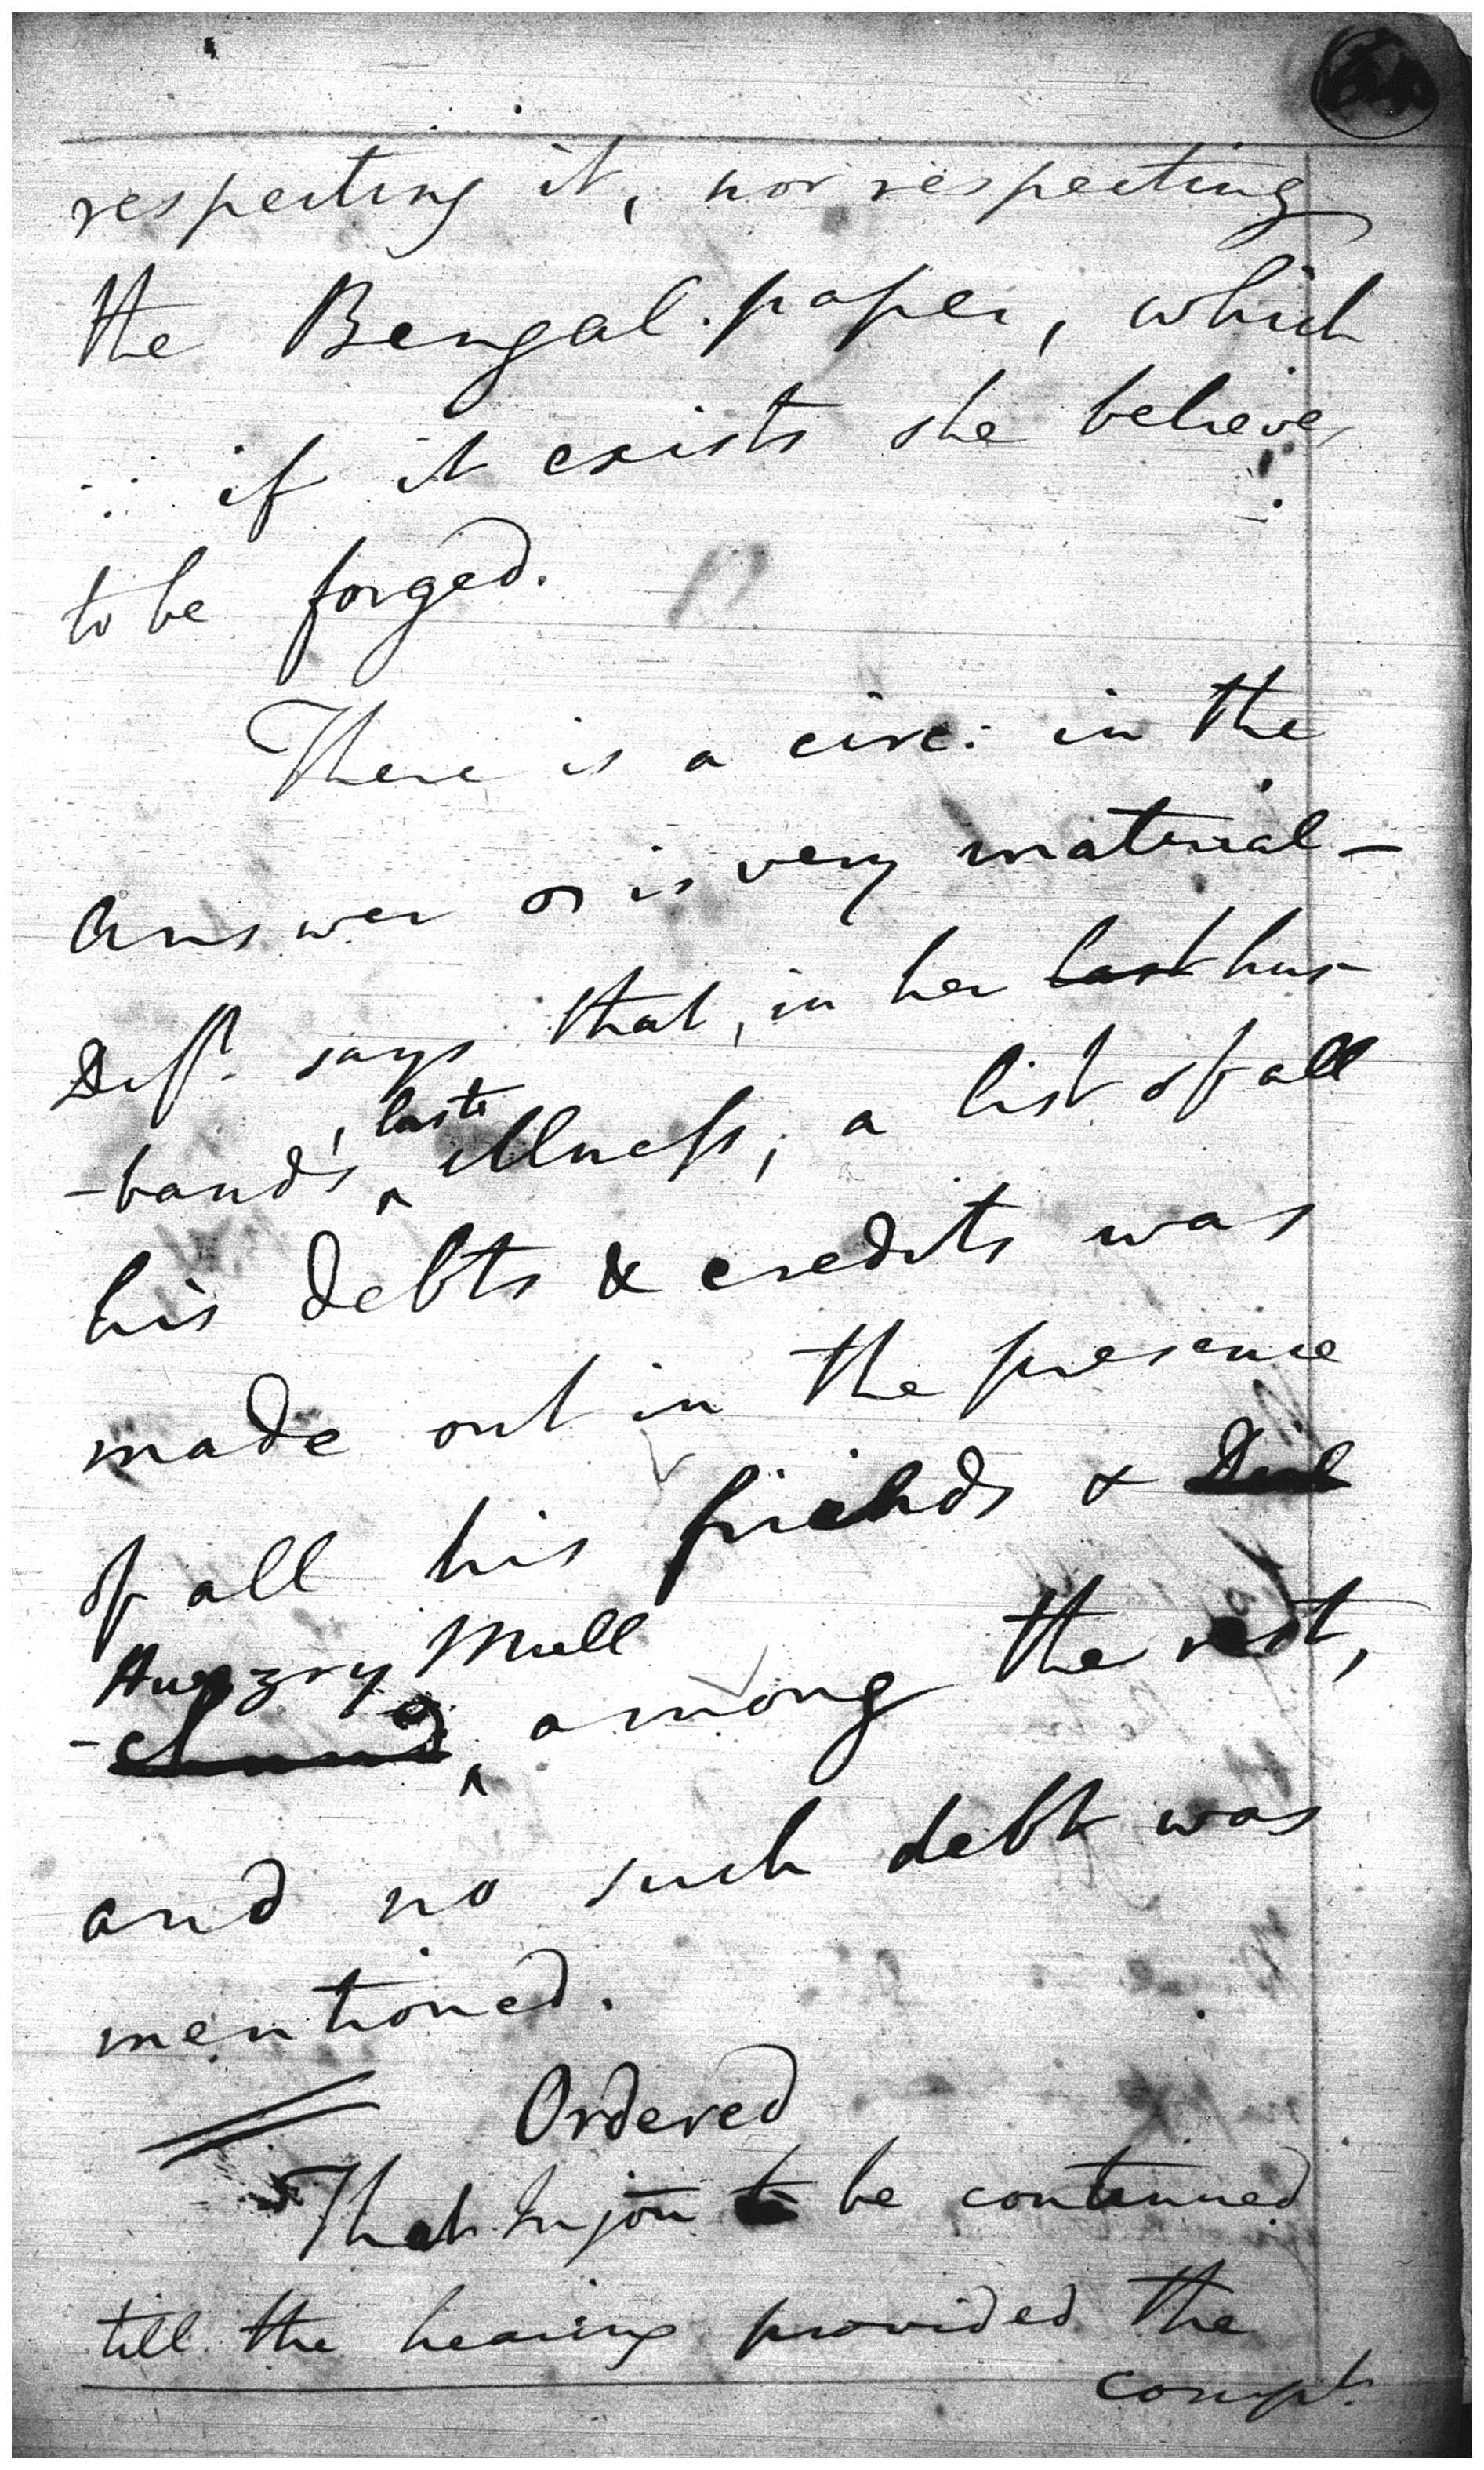 respecting it, nor respecting
the Bengal paper, which
if it exists she believes
to be forged.
There is a circ: in the
answer is very material –
Deft. says that, in her last hus
-band's last illness, a list of all
his debts & credits was
made out in the presence
of all his friends &
Huzry Mull
-chund, among the rest,
and no such debt was
mentioned.
Ordered
That Injon be continued
till the hearing provided the
compt.